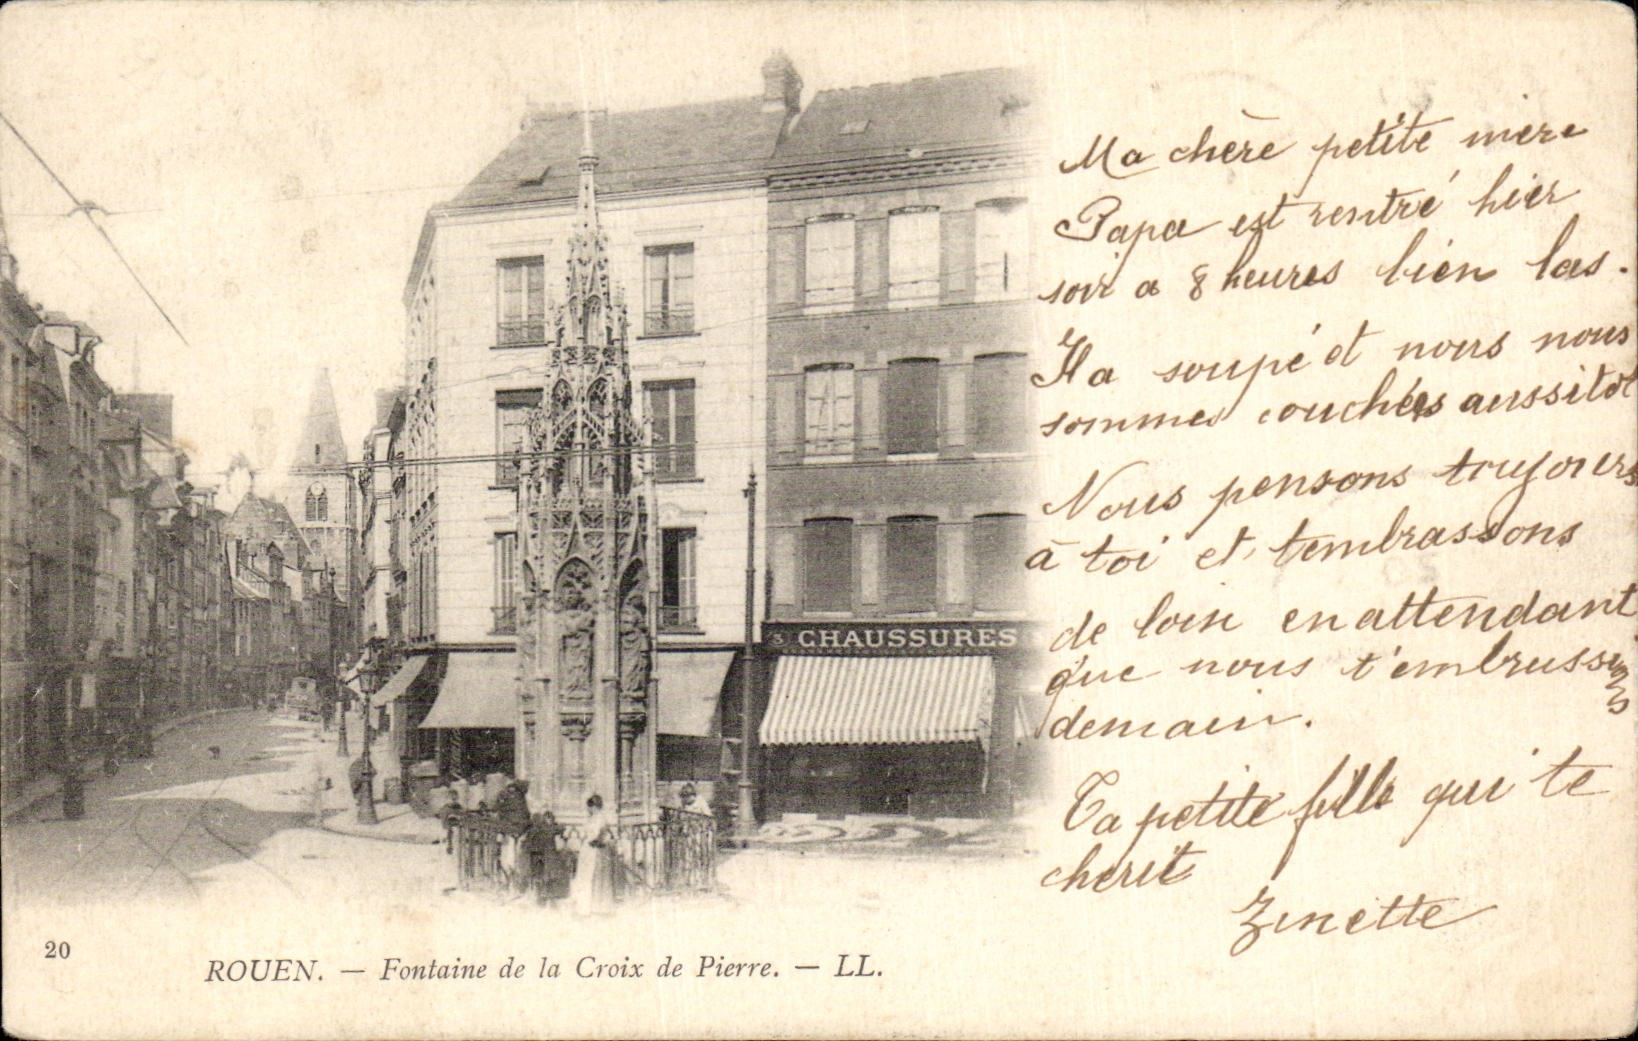 3 CHAUSSURES
Ma chère petite mère
Papa est rentré hier
soir a 8 heures bien las.
Il a soupé et nous nous
sommes couchés aussitot
Nous pensons toujours
à toi et t'embrassons
de loin en attendant
que nous t'embrassions
demain.
Ta petite fille qui te
cherit
Zinette
20
ROUEN. — Fontaine de la Croix de Pierre. — LL.